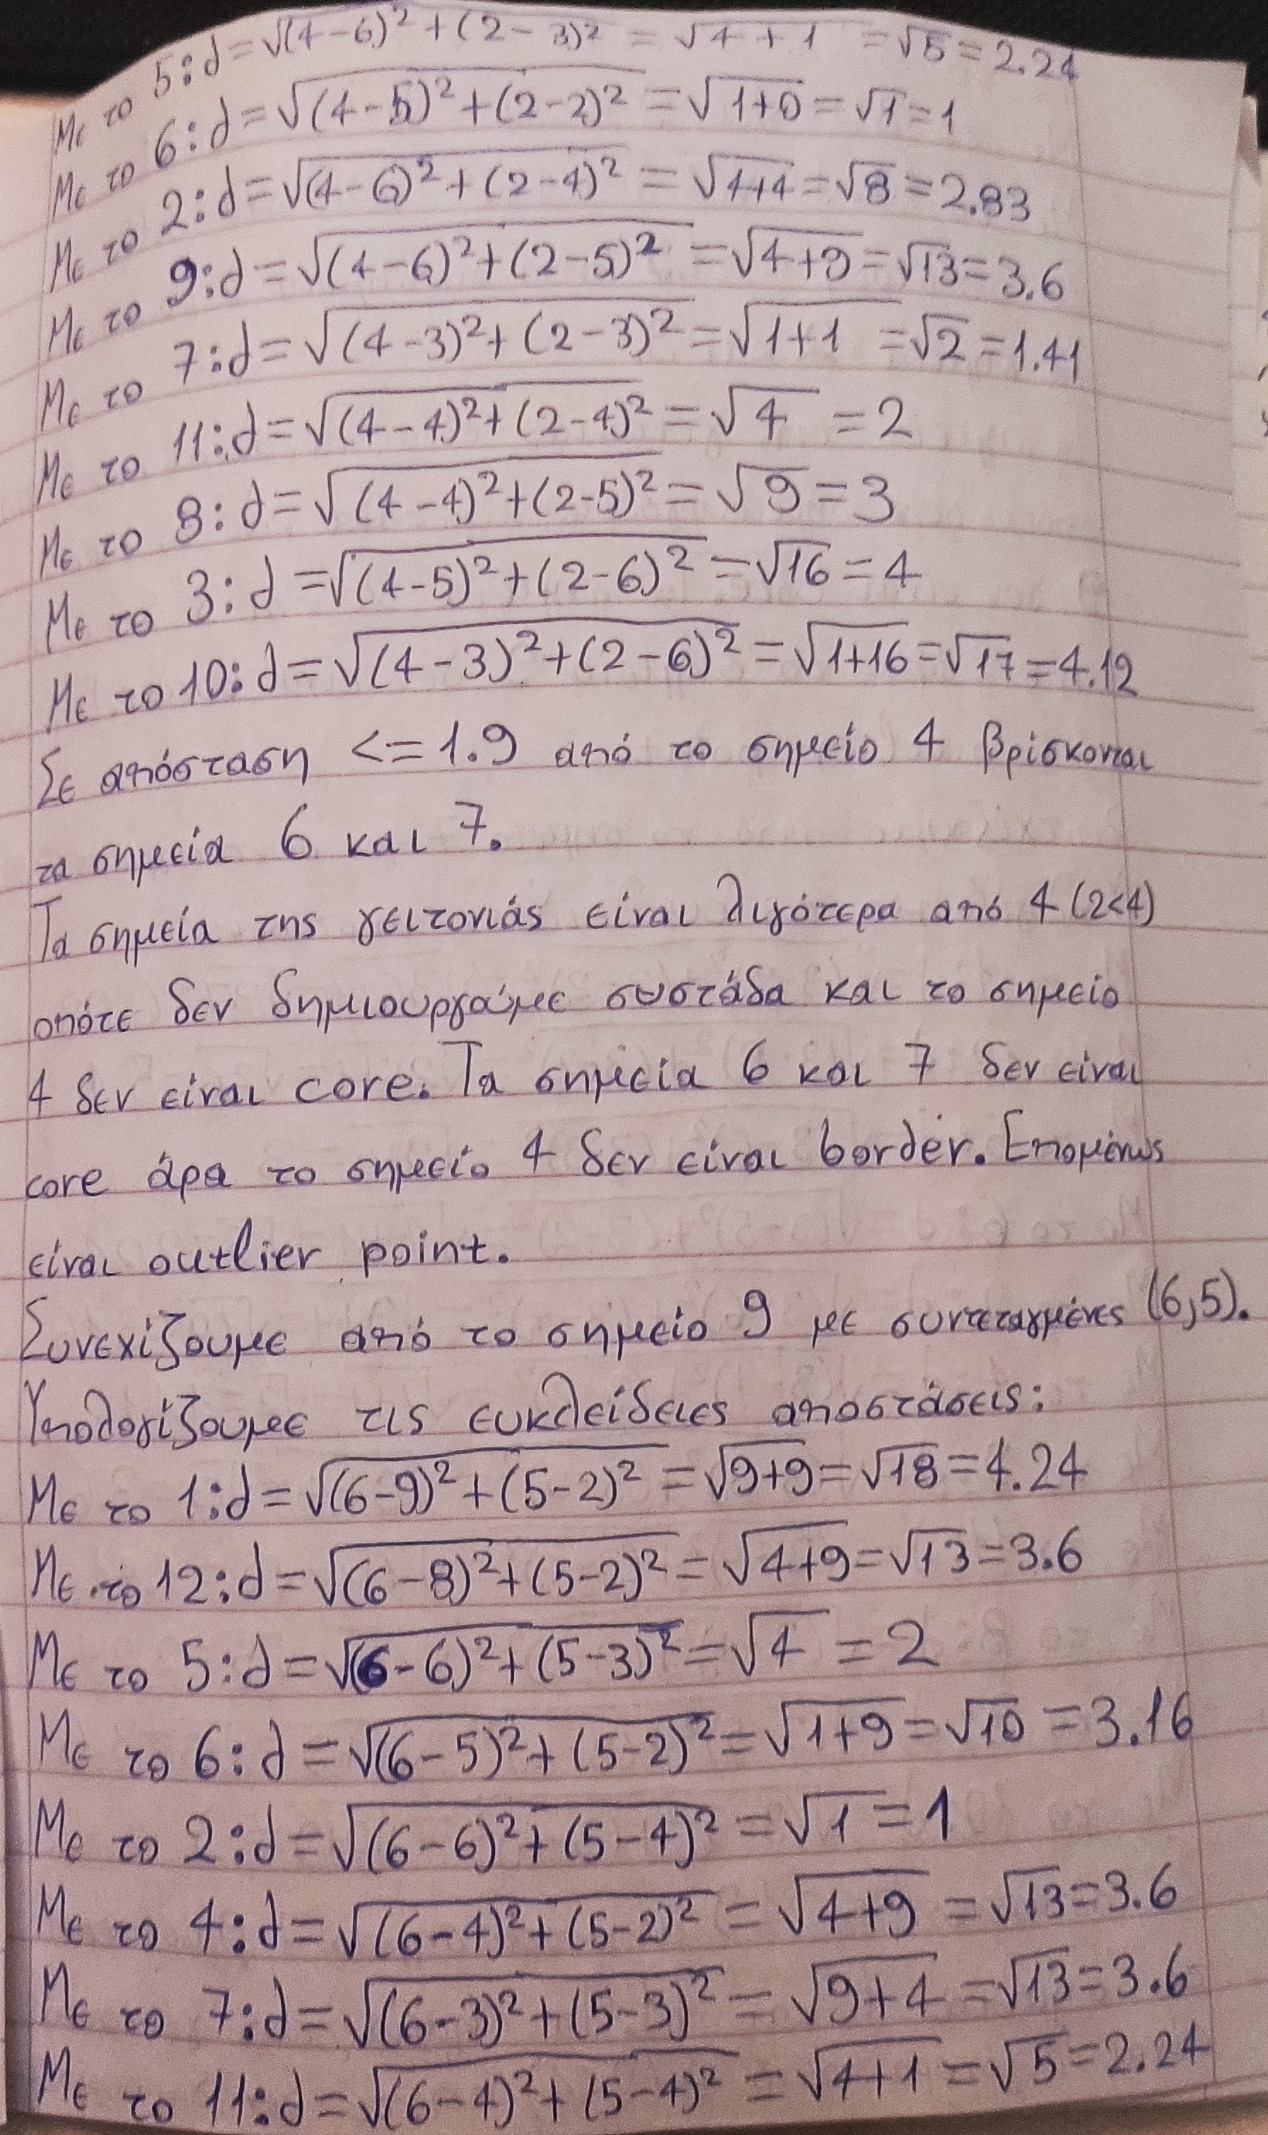 Με το 5:d=√(4-6)²+(2-3)² = √4+1 =√5=2.24
Με το 6:d=√(4-5)²+(2-2)²=√1+0=√1=1
Με το 2:d=√(4-6)²+(2-4)²=√4+4=√8=2.83
Με το 9:d=√(4-6)²+(2-5)²=√4+9=√13=3.6
Με το 7:d=√(4-3)²+(2-3)²=√1+1=√2=1.41
Με το 11:d=√(4-4)²+(2-4)²=√4=2
Με το 8:d=√(4-4)²+(2-5)²=√9=3
Με το 3:d=√(4-5)²+(2-6)²=√16=4
Με το 10:d=√(4-3)²+(2-6)²=√1+16=√17=4.12
Σε απόσταση <=1.9 από το σημείο 4 βρίσκονται
τα σημεία 6 και 7.
Τα σημεία της γειτονιάς είναι λιγότερα από 4 (2<4)
οπότε δεν δημιουργούμε συστάδα και το σημείο
4 δεν είναι core. Τα σημεία 6 και 7 δεν είναι
core άρα το σημείο 4 δεν είναι border. Επομένως
είναι outlier point.
Συνεχίζουμε από το σημείο 9 με συντεταγμένες (6,5).
Υπολογίζουμε τις ευκλείδειες αποστάσεις:
Με το 1:d=√(6-9)²+(5-2)²=√9+9=√18=4.24
Με το 12:d=√(6-8)²+(5-2)²=√4+9=√13=3.6
Με το 5:d=√(6-6)²+(5-3)²=√4=2
Με το 6:d=√(6-5)²+(5-2)²=√1+9=√10=3.16
Με το 2:d=√(6-6)²+(5-4)²=√1=1
Με το 4:d=√(6-4)²+(5-2)²=√4+9=√13=3.6
Με το 7:d=√(6-3)²+(5-3)²=√9+4=√13=3.6
Με το 11:d=√(6-4)²+(5-4)²=√4+1=√5=2.24